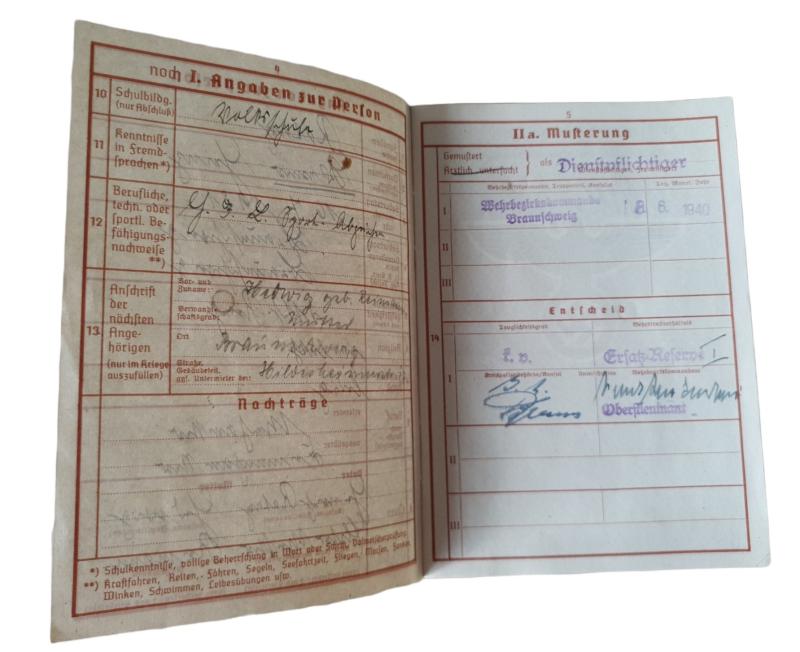 4
noch I. Angaben zur Person
10 Schulbildg. (nur Abschluß) Volksschule
11 Kenntnisse in Fremdsprachen *)
12 Berufliche, techn. oder sportl. Befähigungsnachweise **)
13. Anschrift der nächsten Angehörigen (nur im Kriege auszufüllen)
Vor- und Zuname: Hedwig geb.
Verwandtschaftsgrad: Mutter
Ort: Braunschweig
Straße, Gebäudeteil, ggf. Untermieter bei:
Nachträge
*) Schulkenntnisse, völlige Beherrschung in Wort oder Schrift, Dolmetscherprüfung.
**) Kraftfahren, Reiten, Fahren, Segeln, Seefahrtzeit, Fliegen, Morsen, Funken,
Winken, Schwimmen, Leibesübungen usw.
5
II a. Musterung
Gemustert
Ärztlich untersucht } als Dienstpflichtiger
Tag, Monat, Jahr
I Wehrbezirkskommando
Braunschweig 8 6. 1940
II
III
Entscheid
14
Tauglichkeitsgrad Wehrdienstverhältnis
k. v. Ersatz-Reserve I
I
Oberstleutnant
II
III